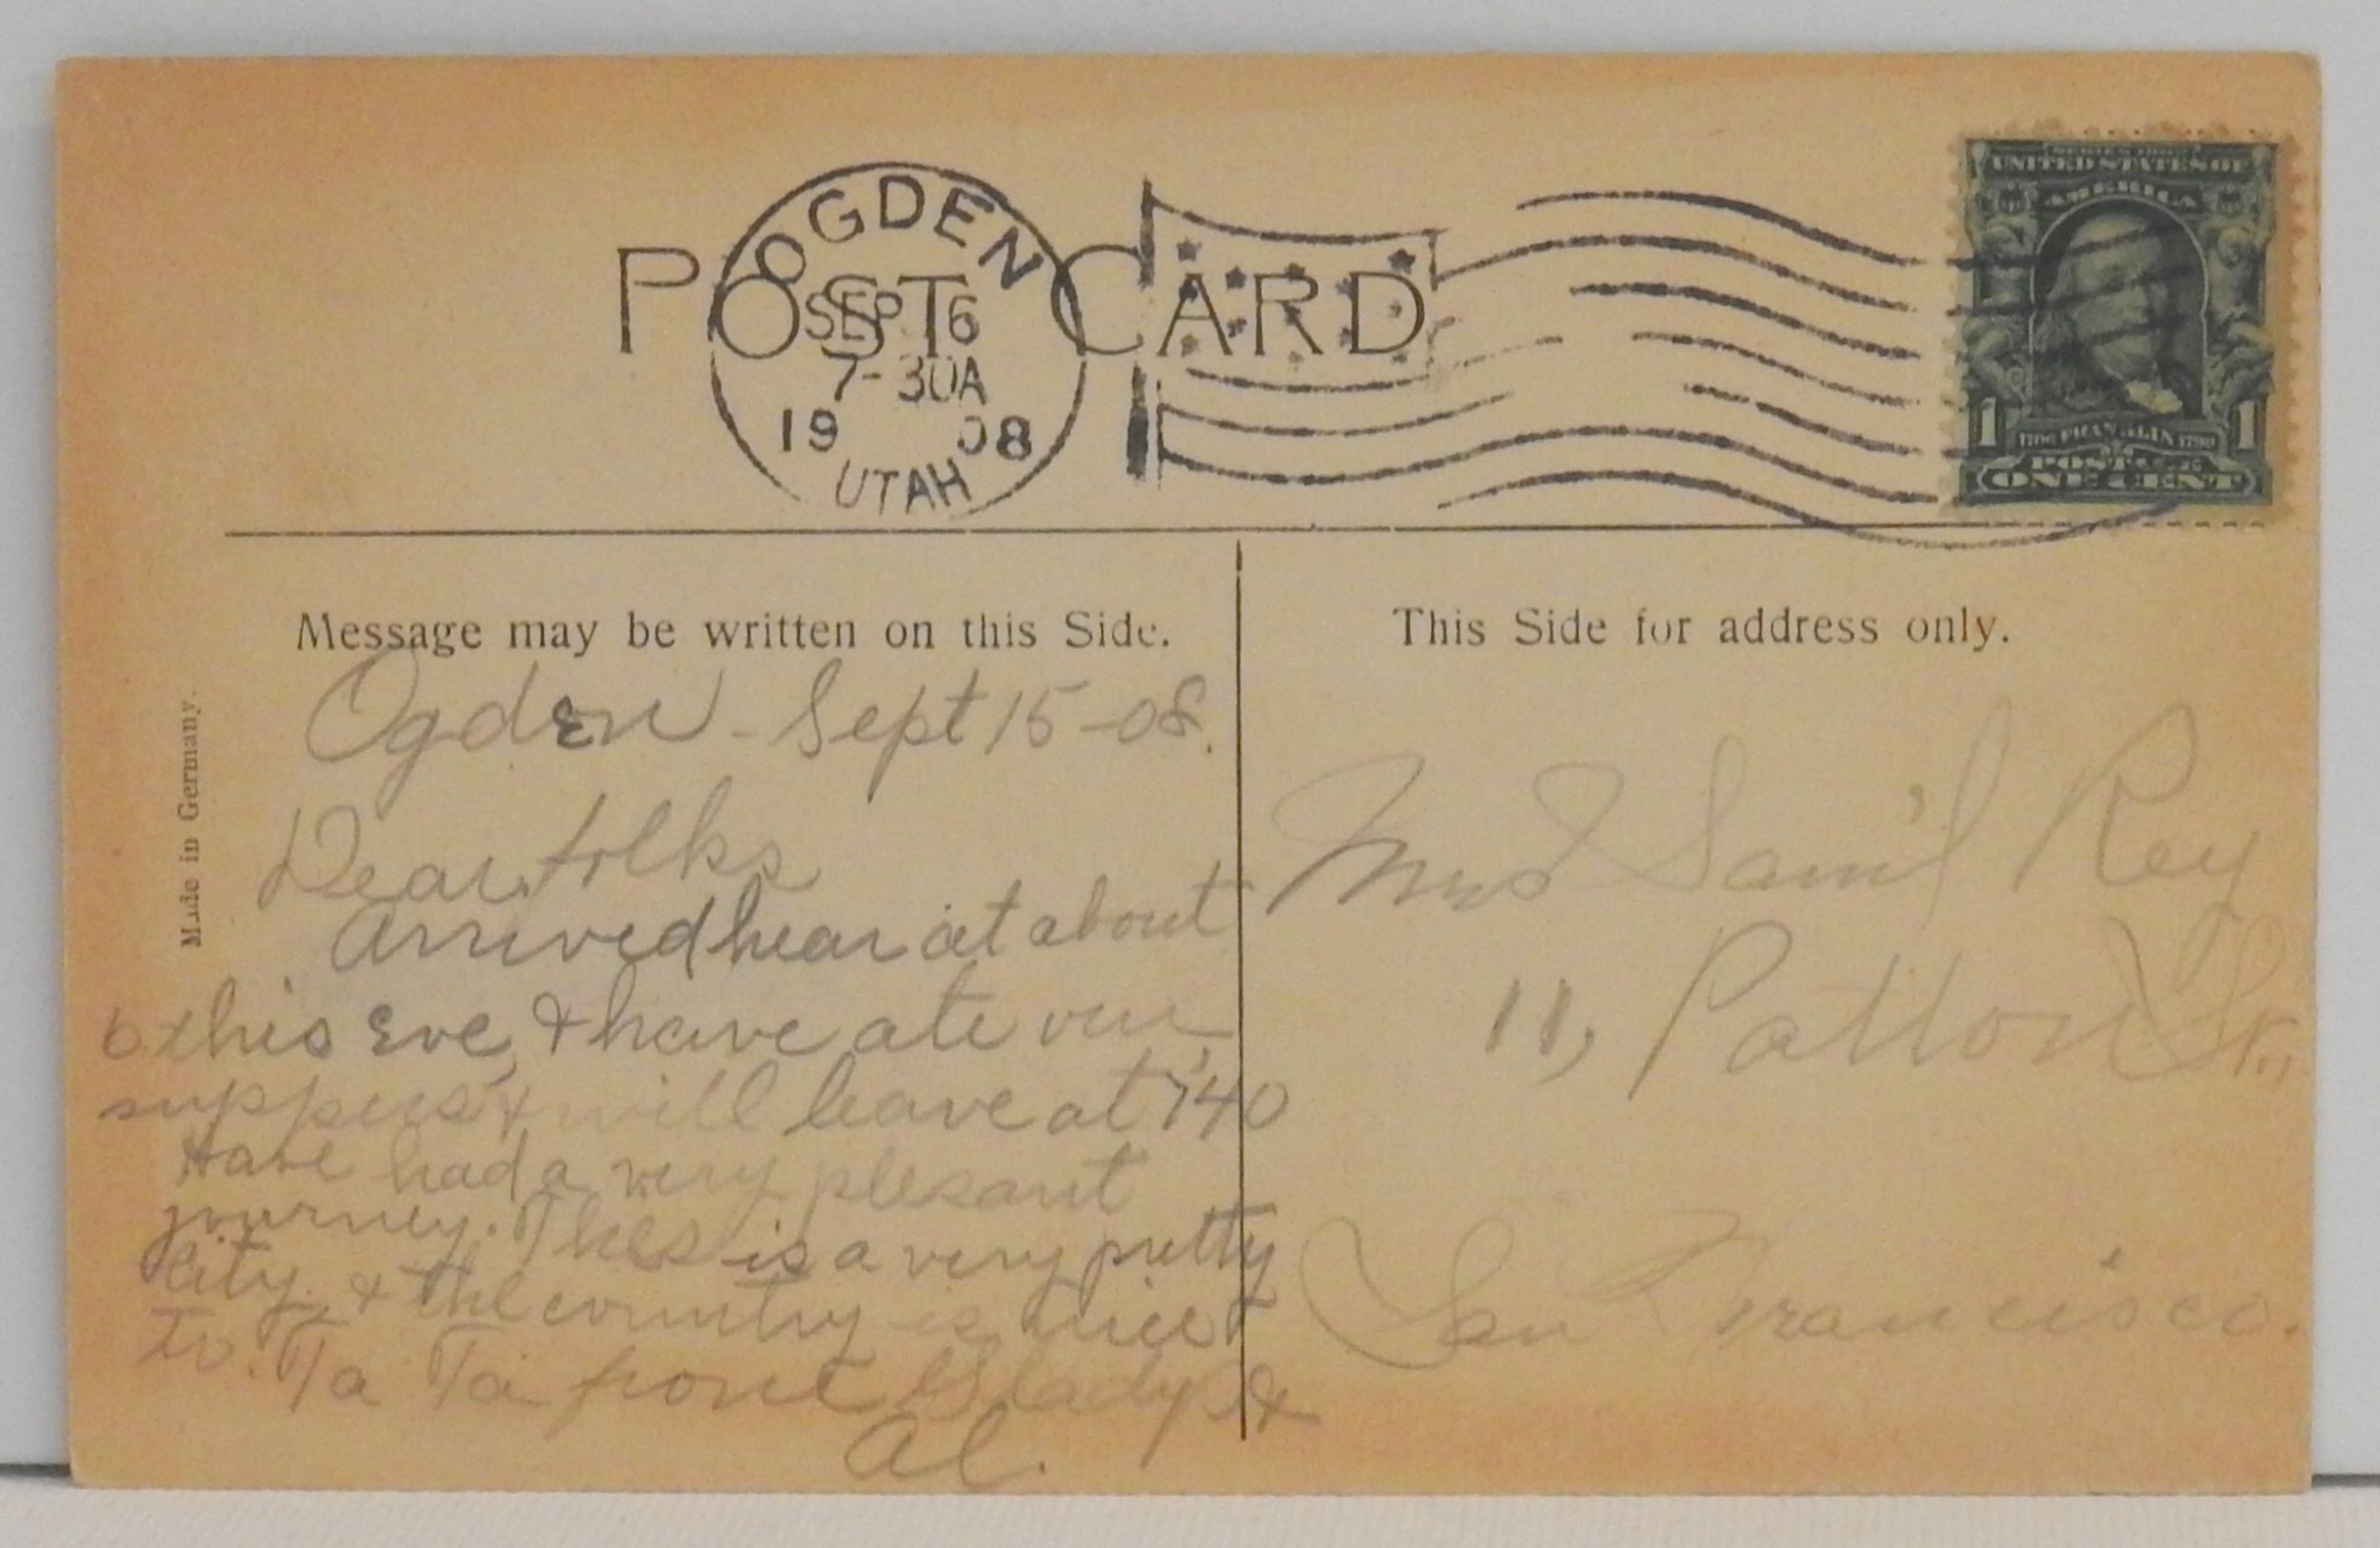 POST CARD
OGDEN
SEP 16
7-30A
1908
UTAH
UNITED STATES OF
AMERICA
1 1706 FRANKLIN 1790 1
POSTAGE
ONE CENT
Message may be written on this Side.
This Side for address only.
Made in Germany.
Ogden - Sept 15-08.
Dear folks
Arrived hear at about
6 this Eve, & have ate our
suppers & will leave at 740
Have had a very plesant
journey. This is a very pretty
City, & the country is nice
to. Ta Ta from Glady &
Al.
Mrs Sam'l Rey
11, Patton St.,
San Francisco.